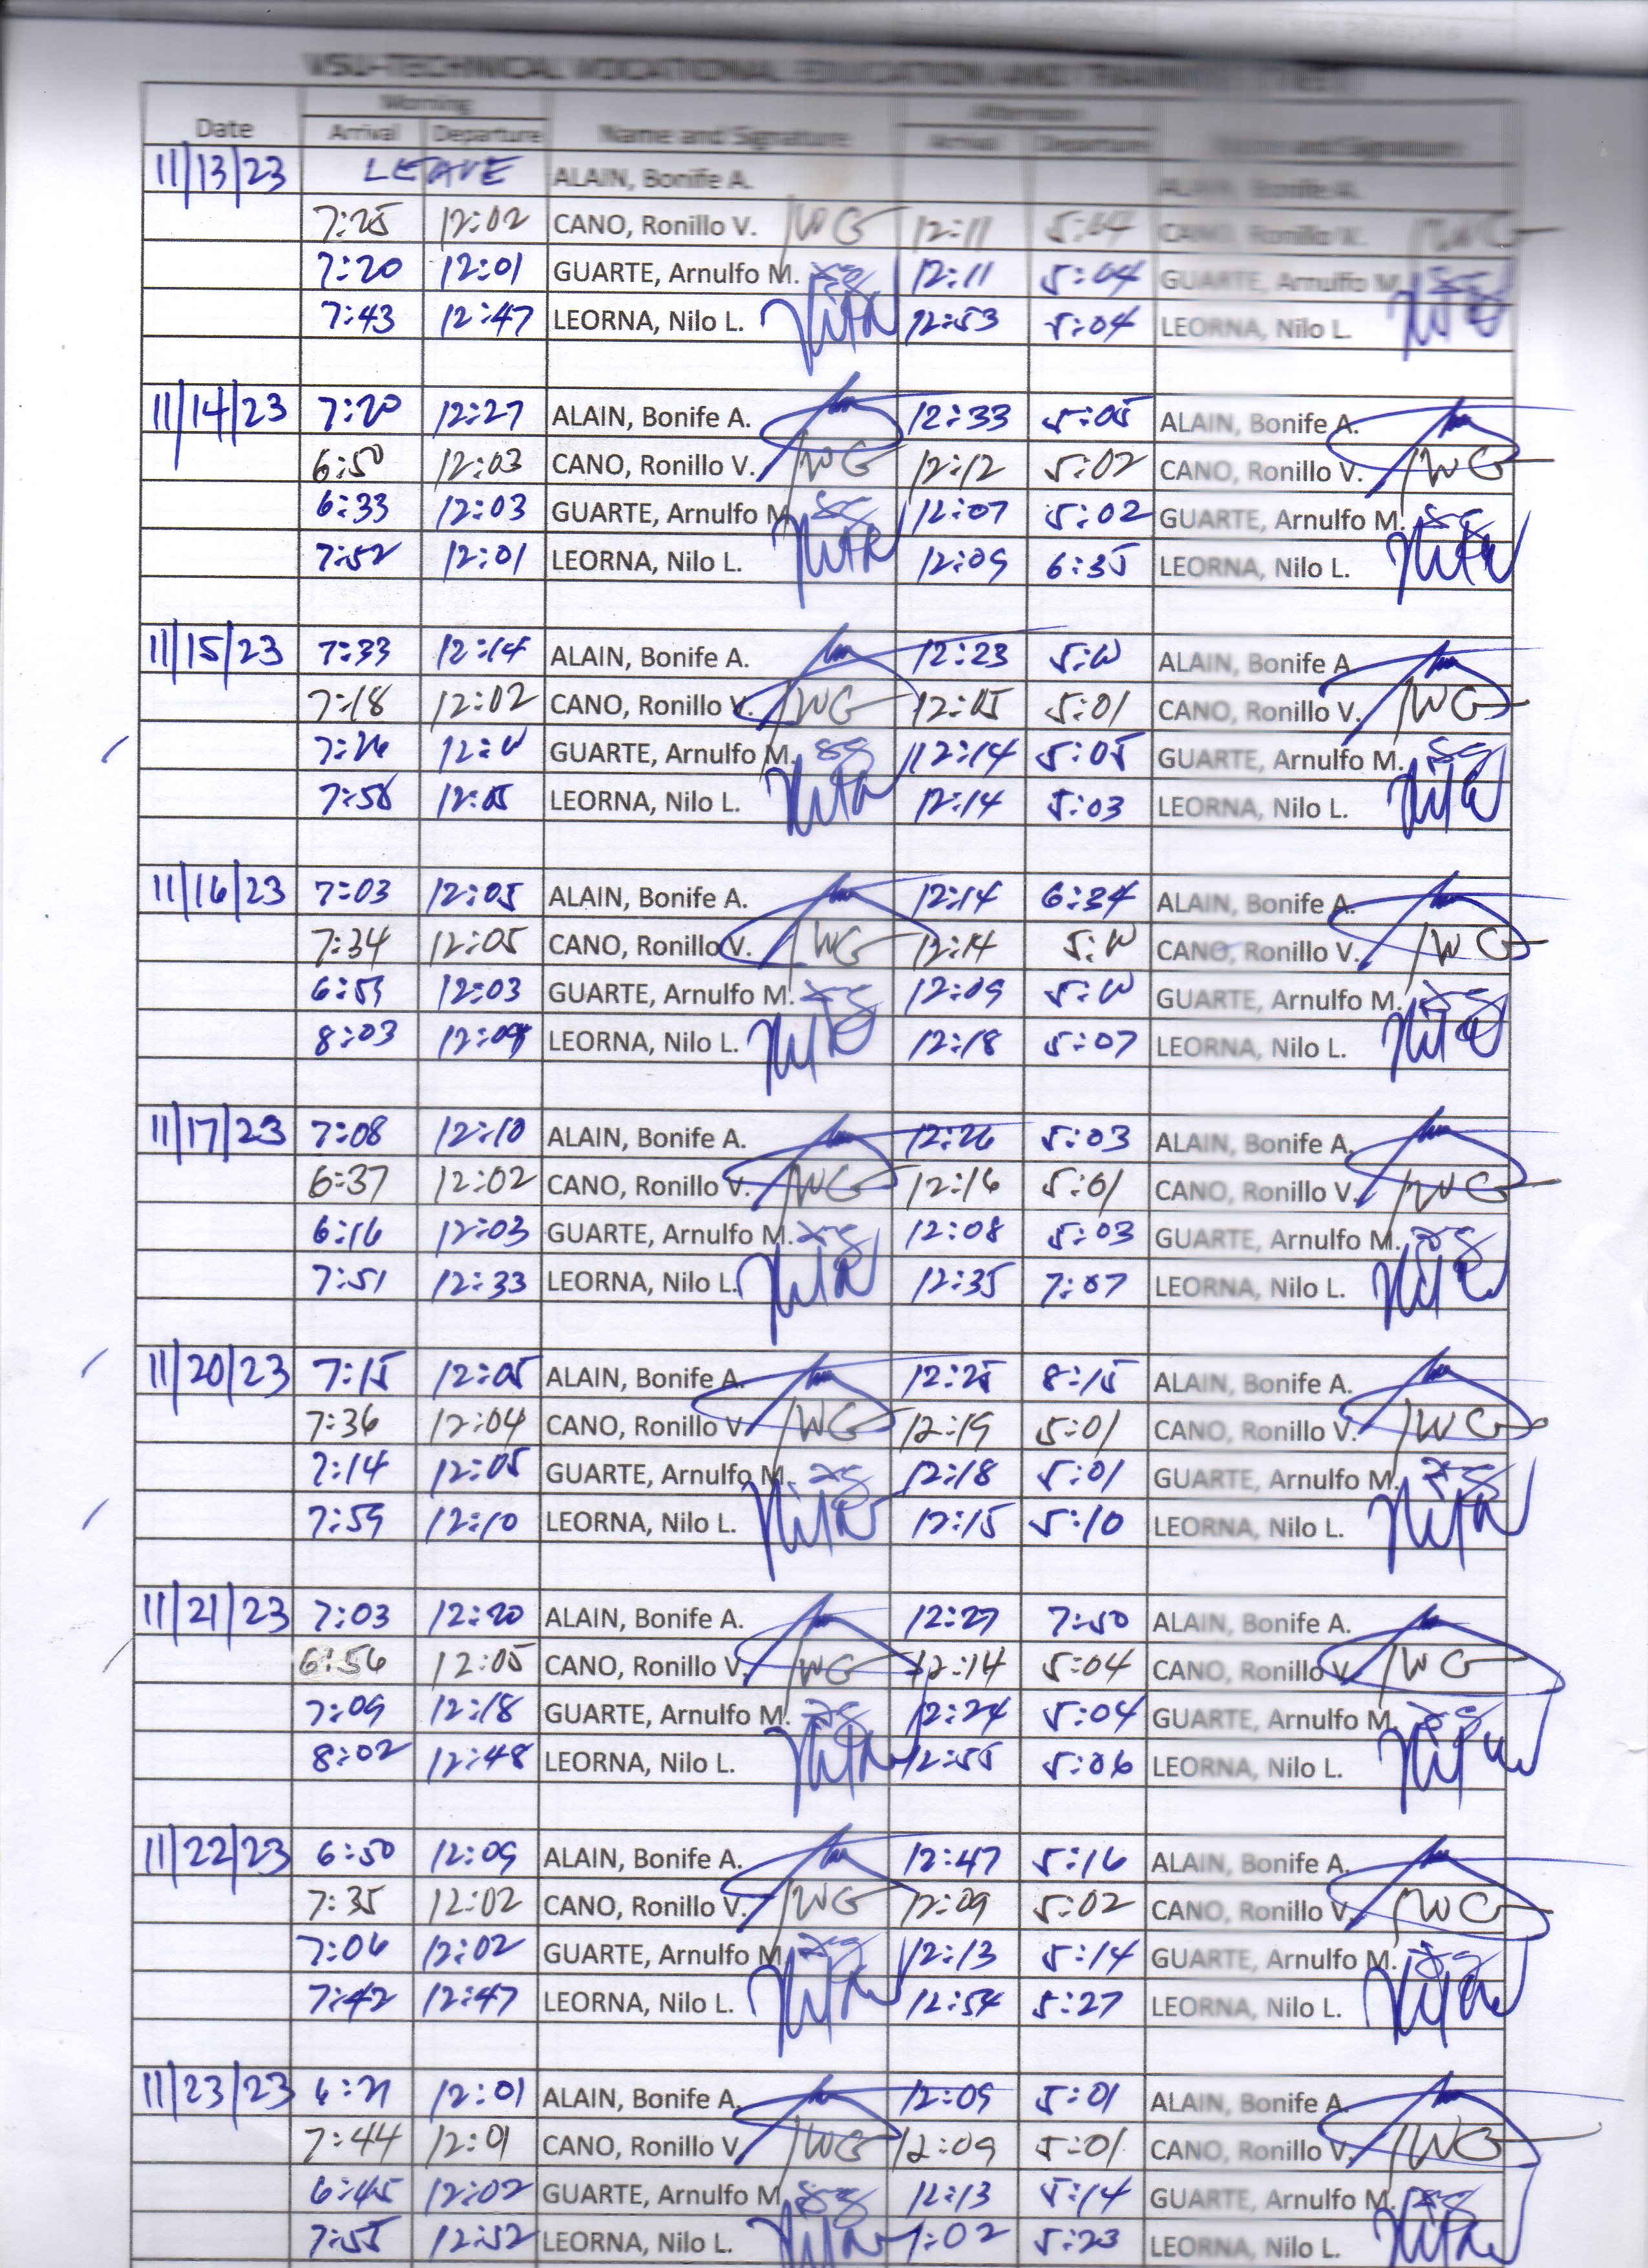 VSU-TECHNICAL VOCATIONAL EDUCATION AND TRAINING
Morning Afternoon
Date Arrival Departure Name and Signature Arrival Departure Name and Signature
11/13/23 LEAVE ALAIN, Bonife A. ALAIN, Bonife A.
7:25 12:02 CANO, Ronillo V. 12:11 5:04 CANO, Ronillo V.
7:20 12:01 GUARTE, Arnulfo M. 12:11 5:04 GUARTE, Arnulfo M.
7:43 12:47 LEORNA, Nilo L. 12:53 5:04 LEORNA, Nilo L.
11/14/23 7:20 12:27 ALAIN, Bonife A. 12:33 5:05 ALAIN, Bonife A.
6:50 12:03 CANO, Ronillo V. 12:12 5:02 CANO, Ronillo V.
6:33 12:03 GUARTE, Arnulfo M. 12:07 5:02 GUARTE, Arnulfo M.
7:52 12:01 LEORNA, Nilo L. 12:09 6:35 LEORNA, Nilo L.
11/15/23 7:33 12:14 ALAIN, Bonife A. 12:23 ALAIN, Bonife A.
7:18 12:02 CANO, Ronillo V. 12:05 5:01 CANO, Ronillo V.
7:26 GUARTE, Arnulfo M. 12:14 5:05 GUARTE, Arnulfo M.
12:05 LEORNA, Nilo L. 12:14 5:03 LEORNA, Nilo L.
11/16/23 7:03 12:05 ALAIN, Bonife A. 12:14 6:34 ALAIN, Bonife A.
7:34 12:05 CANO, Ronillo V. 12:14 CANO, Ronillo V.
6:59 12:03 GUARTE, Arnulfo M. 12:09 GUARTE, Arnulfo M.
8:03 LEORNA, Nilo L. 12:18 5:07 LEORNA, Nilo L.
11/17/23 7:08 12:10 ALAIN, Bonife A. 12:26 5:03 ALAIN, Bonife A.
6:37 12:02 CANO, Ronillo V. 12:16 5:01 CANO, Ronillo V.
6:16 12:03 GUARTE, Arnulfo M. 12:08 5:03 GUARTE, Arnulfo M.
7:51 12:33 LEORNA, Nilo L. 12:35 7:07 LEORNA, Nilo L.
11/20/23 7:15 12:05 ALAIN, Bonife A. 12:25 8:15 ALAIN, Bonife A.
7:36 12:04 CANO, Ronillo V. 12:19 5:01 CANO, Ronillo V.
7:14 12:05 GUARTE, Arnulfo M. 12:18 5:01 GUARTE, Arnulfo M.
7:59 12:10 LEORNA, Nilo L. 12:15 5:10 LEORNA, Nilo L.
11/21/23 7:03 12:20 ALAIN, Bonife A. 12:27 7:50 ALAIN, Bonife A.
6:56 12:05 CANO, Ronillo V. 12:14 5:04 CANO, Ronillo V.
7:09 12:18 GUARTE, Arnulfo M. 12:24 5:04 GUARTE, Arnulfo M.
8:02 12:48 LEORNA, Nilo L. 12:55 5:06 LEORNA, Nilo L.
11/22/23 6:50 12:09 ALAIN, Bonife A. 12:47 5:16 ALAIN, Bonife A.
7:35 12:02 CANO, Ronillo V. 12:09 5:02 CANO, Ronillo V.
7:06 12:02 GUARTE, Arnulfo M. 12:13 5:14 GUARTE, Arnulfo M.
7:42 12:47 LEORNA, Nilo L. 12:54 5:27 LEORNA, Nilo L.
11/23/23 12:01 ALAIN, Bonife A. 12:09 5:01 ALAIN, Bonife A.
7:44 12:01 CANO, Ronillo V. 12:09 5:01 CANO, Ronillo V.
6:45 12:02 GUARTE, Arnulfo M. 12:13 5:14 GUARTE, Arnulfo M.
7:55 12:52 LEORNA, Nilo L. 1:02 5:23 LEORNA, Nilo L.